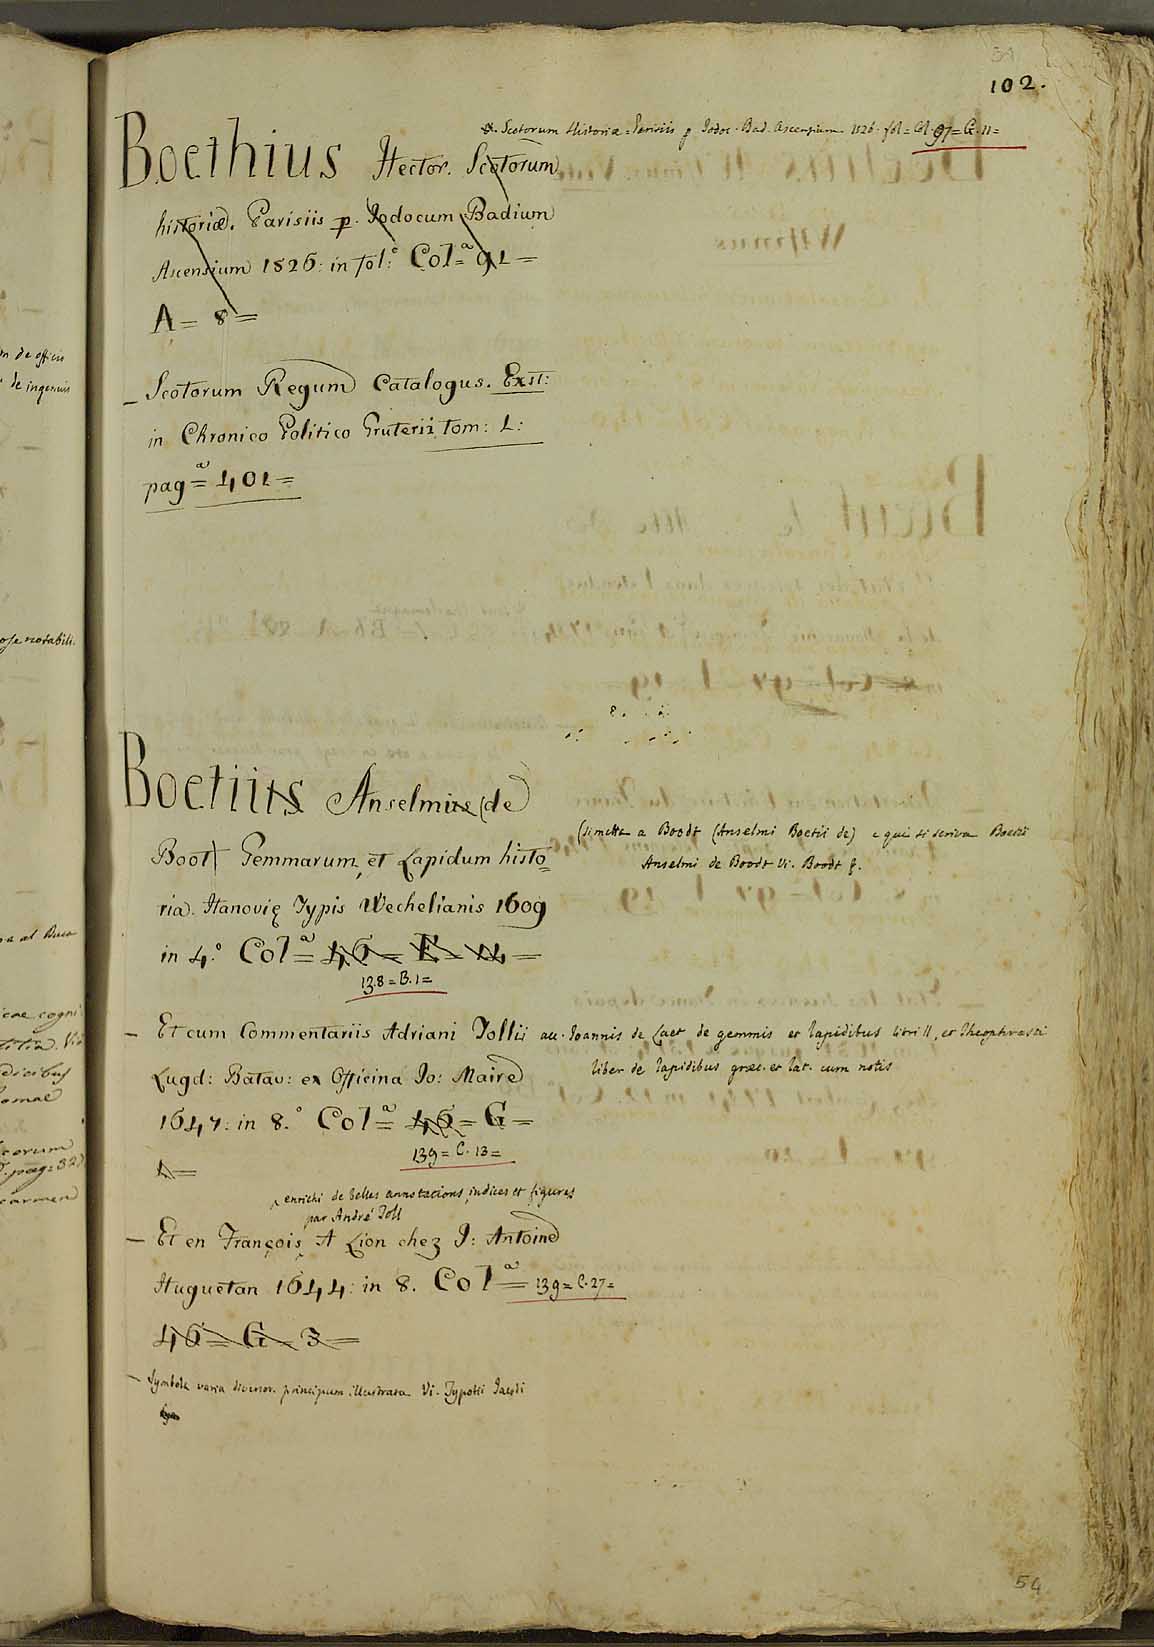 102.
Scotorum Historia = Parisiis p. Jodoc. Bad. Ascensium 1526. fol = Col. 97 = G. 11 =
Boethius Hector. Scotorum
historiæ. Parisiis p. Jodocum Badium
Ascensium 1526: in fol:° Col=ª 91 =
A = 8 =
_ Scotorum Regum Catalogus. Exst:
in Chronico Politico Gruterii tom: 1:
pagª= 401 =
Boetius Anselmus (de
Boot) Gemmarum, et Lapidum histo=
ria. Hanovię Typis Wechelianis 1609
in 4.° Colª= 46 = E = 14 =
138 = B. 1 =
(si mette a Boodt (Anselmi Boetii de) e qui si scriva Boetii
Anselmi de Boodt Vi. Boodt
_ Et cum Commentariis Adriani Tollii acc. Joannis de Laet de gemmis et lapidibus libri II, et Theophrasti
liber de lapidibus græc. et lat. cum notis
Lugd: Batav: ex Officina Jo: Maire
1647: in 8.° Colª= 46 = G =
139 = C. 13 =
1 =
enrichi de belles annotations, indices et figures
par André Toll
_ Et en François A Lion chez J: Antoine
Huguetan 1644: in 8. Colª= 139 = C. 27 =
46 = G = 3 =
_ Symbola varia diversor. principum illustrata Vi. Typotii Jacobi
54